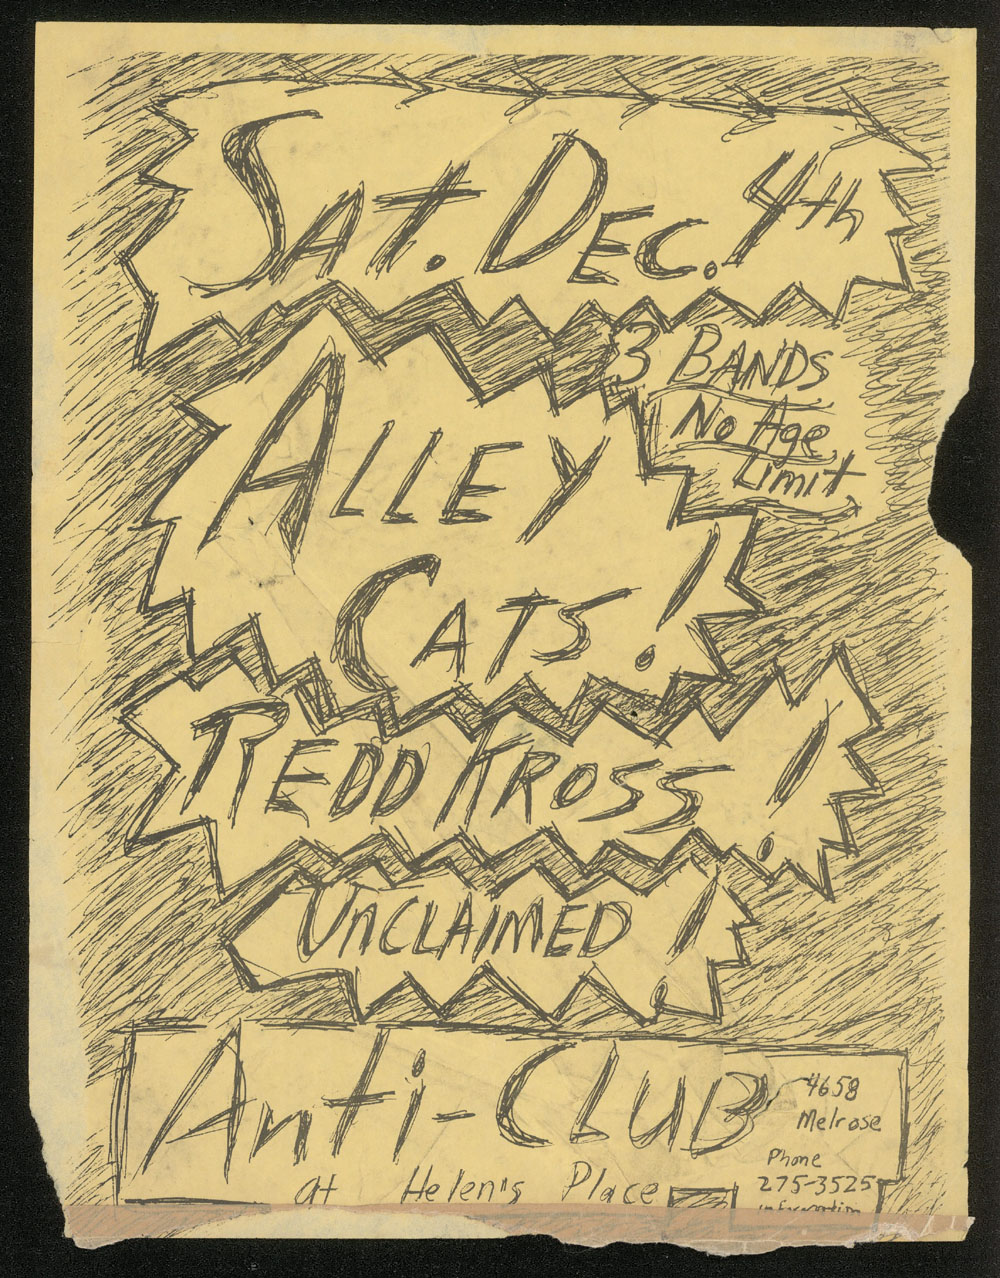 Sat. Dec. 4th
3 BANDS
No Age
Limit
ALLEY
CATS!
REDD KROSS!
UNCLAIMED!
Anti-CLUB
at Helen's Place
4658
Melrose
Phone
275-3525
information